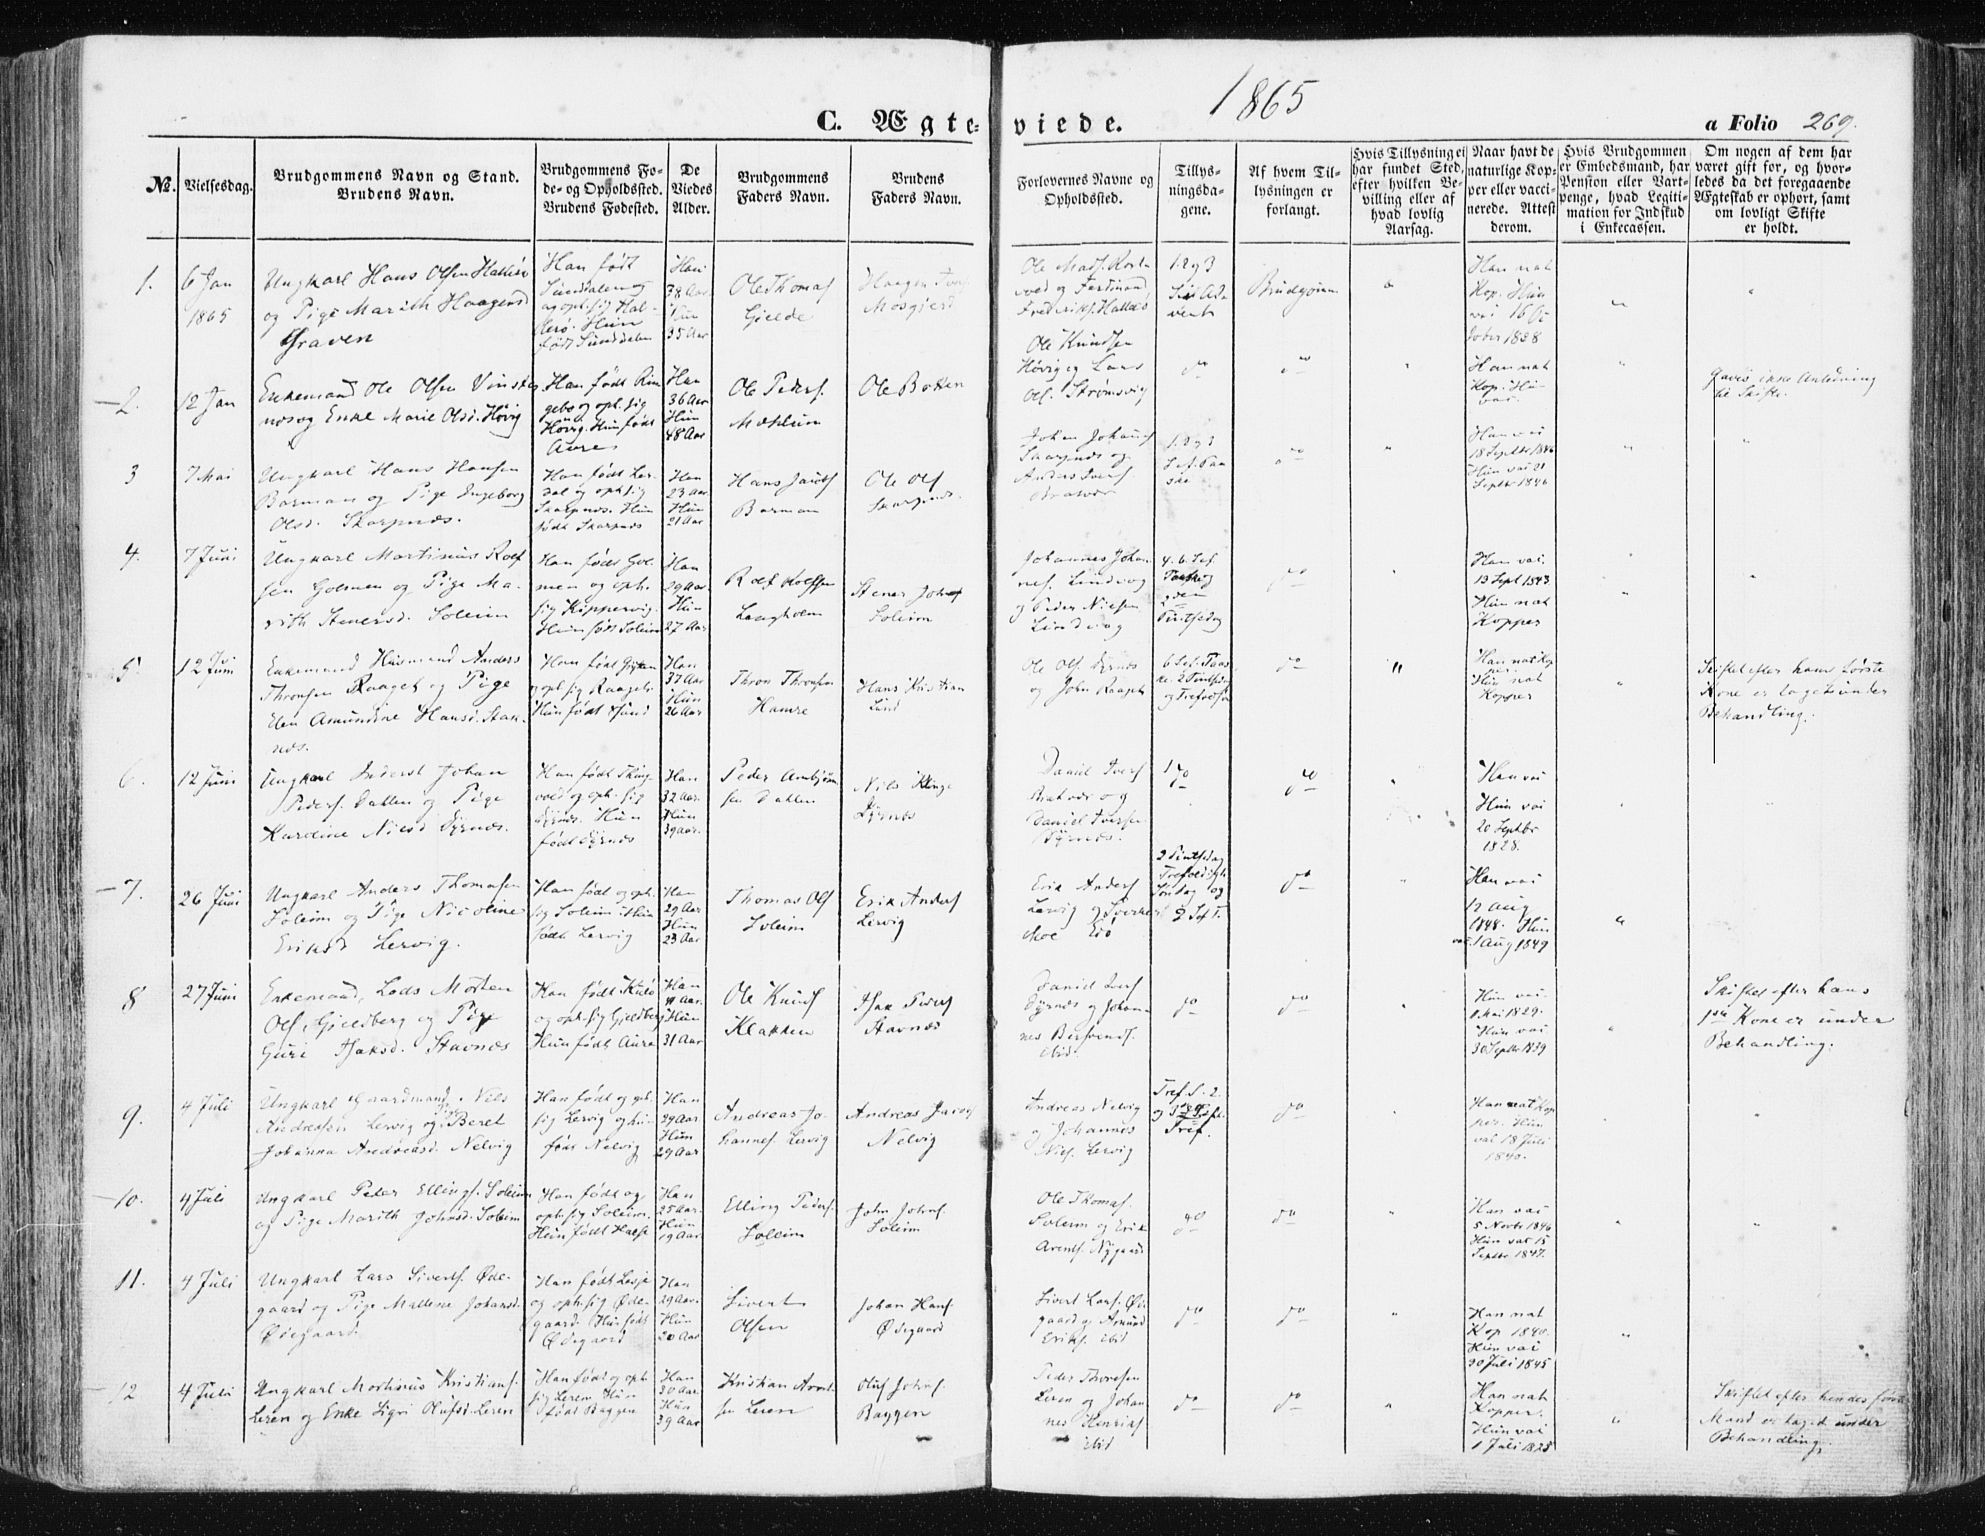 1865
C. Ægte-viede.
a Folio 269.
№.
Vielsesdag.
Brudgommens Navn og Stand.
Brudens Navn.
Brudgommens Fø-
de- og Opholdssted.
Brudens Fødested.
De
Viedes
Alder.
Brudgommens
Faders Navn.
Brudens
Faders Navn.
Forlovernes Navne og
Opholdssted.
Tillys-
ningsda-
gene.
Af hvem Til-
lysningen er
forlangt.
Hvis Tillysning ei
har fundet Sted,
efter hvilken Be-
villing eller af
hvad lovlig
Aarsag.
Naar havt de
naturlige Kop-
per eller vacci-
nerede. Attest
derom.
Hvis Brudgommen
er Embedsmand, har
Pension eller Vart-
penge, hvad Legiti-
mation for Indskud
i Enkecassen.
Om nogen af dem har
været gift før, og hvor-
ledes da det foregaaende
Ægteskab er ophørt, samt
om lovligt Skifte
er holdt.
1.
6 Jan
1865
Ungkarl Hans Olsen
og Pige Marith Haagensd
Graven
Han født
Sundalen og
oph. sig
Hun
født Sundalen
Han
38 Aar
Hun
35 Aar
Ole Thomas
Gjelde
Haagen
Ole Mads.
og Ferdinand
Frederiks.
1. 2 og 3
S. i Ad-
vent
Brudgom
Han nat
Kop. Hun
vac 16
1838
2.
12 Jan
Enkemand Ole Olsen
og Enke Marie Olsd. Høvig
Han født Rin
gebo og oph. sig
Høvig. Hun født
Aure
Han
36 Aar
Hun
48 Aar
Ole Peders.
Mæhlum
Ole Bakken
Ole Knudsen
Høvig og Lars
Ols. Strømsvig
do
do
Han nat
Kop. Hun
vac.
Gaves ikke Anledning
til Skifte.
3
7 Mai
Ungkarl Hans Hansen
Barman og Pige Engeborg
Olsd. Skarpnæs.
Han født
og oph. sig
Skarpnæs. Hun
født Skarpnæs
Han
23 Aar
Hun
21 Aar
Hans Jacobs
Barman
Ole Ols
Skarpnæs.
Johan Johans
Skarpnæs og
Anders Ivers.
Bratvær
1. 2 og 3
S. ef. Paa
ske
do
Han vac
18 Septbr 1846
Hun vac 21
Septbr 1846
4.
7 Juni
Ungkarl Martinus Rolf
sen Golmen og Pige Ma-
rith Stenersd. Soleim
Han født Gol-
men og oph.
sig Kippervig.
Hun født Soleim
Han
29 Aar
Hun
27 Aar
Rolf Rolfsen
Langholm
Stener Johns
Soleim
Johannes Johan
nes. Lindvog
og Peder Nielsen
Lindvog
4. 6. S. ef.
Paaske og
2den
Pintsedag
do
Han vac.
13 Sept 1843
Hun nat
Kopper
5
12 Juni
Enkemand Husmand Anders
Thronsen Raaget og Pige
Elen Amundine Hansd. Stak-
næs.
Han født
oph. sig Raaget
Hun født
Han
37 Aar
Hun
26 Aar
Thron Thronsen
Hamre
Hans Kristian
Lund
Ole Ols. Dyrnæs
og John Raaget
6 S. ef. Paas
ke. 2 Pintsedag
og
do
"
Han nat Kop
per
Hun nat
Kopper
Skiftet efter hans første
Kone er taget under
Behandling.
6.
12 Juni
Ungkarl Inderst Johan
Peders. Dallen og Pige
Karoline Nielsd Dyrnæs.
Han født Thing-
vold og oph. sig
Dyrnæs. Hun
født Dyrnæs
Han
32 Aar.
Hun
39 Aar.
Peder
sen Dallen
Nils Klinge
Dyrnæs
Daniel Ivers
Bratvær og
Daniel Iversen
Dyrnæs.
do
do
Han vac
Hun vac
20 Septbr
1828.
7.
26 Juni
Ungkarl Anders Thomasen
Soleim og Pige Nicoline
Eriksd Lervig.
Han født og oph.
sig Soleim Hun
født Lervig
Han
29 Aar
Hun
23 Aar
Thomas Ols
Soleim
Erik Anders
Lervig
Erik Anders
Lervig og
Moe
2 Pintsedag
Søndag og
2 S. ef T.
do
Han vac
12 Aug
1848. Hun
vac. 1 Aug 1849
8
27 Juni
Enkemand, Lods Morten
Ols. Gjeldberg og Pige
Guri Isaksd. Stavnæs
Han født Kulø
og oph. sig Gjeldberg
Hun født Aure
Han
Aar.
Hun
31 Aar
Ole Knuds
Klakken
Isak Peders
Stavnæs
Daniel Ivers
Dyrnæs og Johan
nes
ibid.
do
do
Hun vac.
1 Mai 1829.
Hun vac
30 Septbr 1839
Skiftet efter hans
1ste Kone er under
Behandling.
9.
4 Juli
Ungkarl Gaardmand Nils
Andresen Lervig og Pige Beret
Johanna Andreasd. Nelvig
Han født og oph.
sig Lervig og hun
født Nelvig
Han
29 Aar
Hun
29 Aar
Andreas Jo-
hannes. Lervig
Andreas
Nelvig
Andreas Nelvig
og Johannes
Niels. Lervig
Tref. S. 2.
Tref.
do
Han nat Kop
per. Hun
vac 18 Juli
1840.
10.
4 Juli
Ungkarl Peter Ellings. Soleim
og Pige Marith Johnsd. Soleim
Han født og
oph. sig Soleim.
Hun født Halse
Han
25 Aar.
Hun
19 Aar.
Elling Peders.
Soleim
John Johns.
Soleim
Ole Thomas.
Soleim og Erik
Arents. Nygaard
do
do
Han vac
5 Novbr 1846
Hun vac 15
Septbr 1847.
11.
4 Juli
Ungkarl Lars Siverts. Øde-
gaard og Pige Mallene Johansd.
Ødegaard.
Han født Lesje
og oph. sig Øde-
gaard. Hun født
Ødegaard
Han
29 Aar.
Hun
20 Aar
Sivert
Olsen
Johan Hans.
Ødegaard
Sivert Lars. Øde
gaard og Amund
Eriks. ibid
do
do
Han nat
Kop 1840.
Hun vac
30 Juli 1845
12
4 Juli
Ungkarl Mortinus Kristians.
Leren og Enke Sigri Olufsd. Leren
Han født og oph
sig Leren. Hun
født Baggen
Han
30 Aar
Hun
39 Aar
Kristian Arent-
sen Leren
Oluf Johns.
Baggen
Peder Thoresen
Leren og Johan
nes Henriks
ibid
do
do
Han nat
Kopper.
Hun vac
1 Juli 1828
Skiftet efter hendes første
Mand er taget under
Behandling.